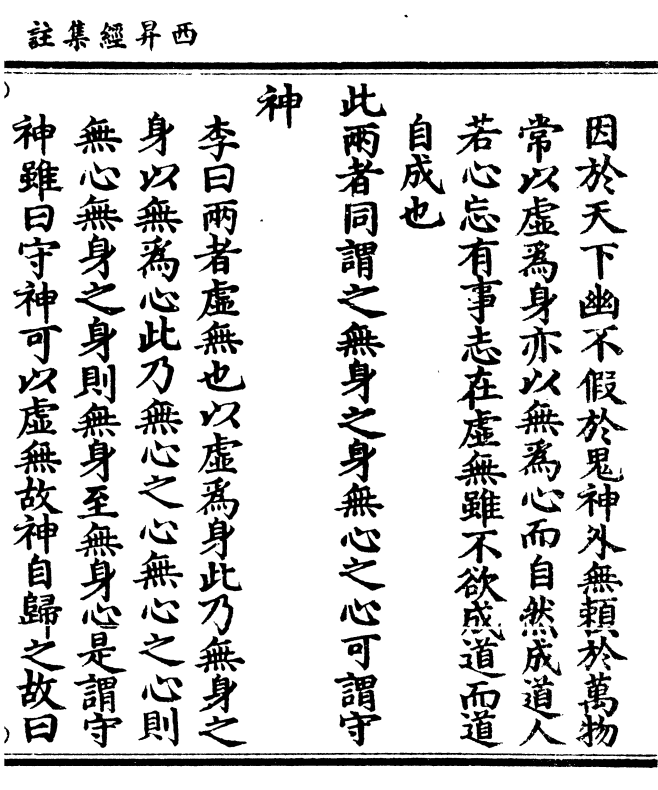 西昇經集註
因於天下幽不假於鬼神外無賴於萬物
常以虛爲身亦以無爲心而自然成道人
若心忘有事志在虛無雖不欲成道而道
自成也
此兩者同謂之無身之身無心之心可謂守
神
李曰兩者虛無也以虛爲身此乃無身之
身以無爲心此乃無心之心無心之心則
無心無身之身則無身至無身心是謂守
神雖曰守神可以虛無故神自歸之故曰